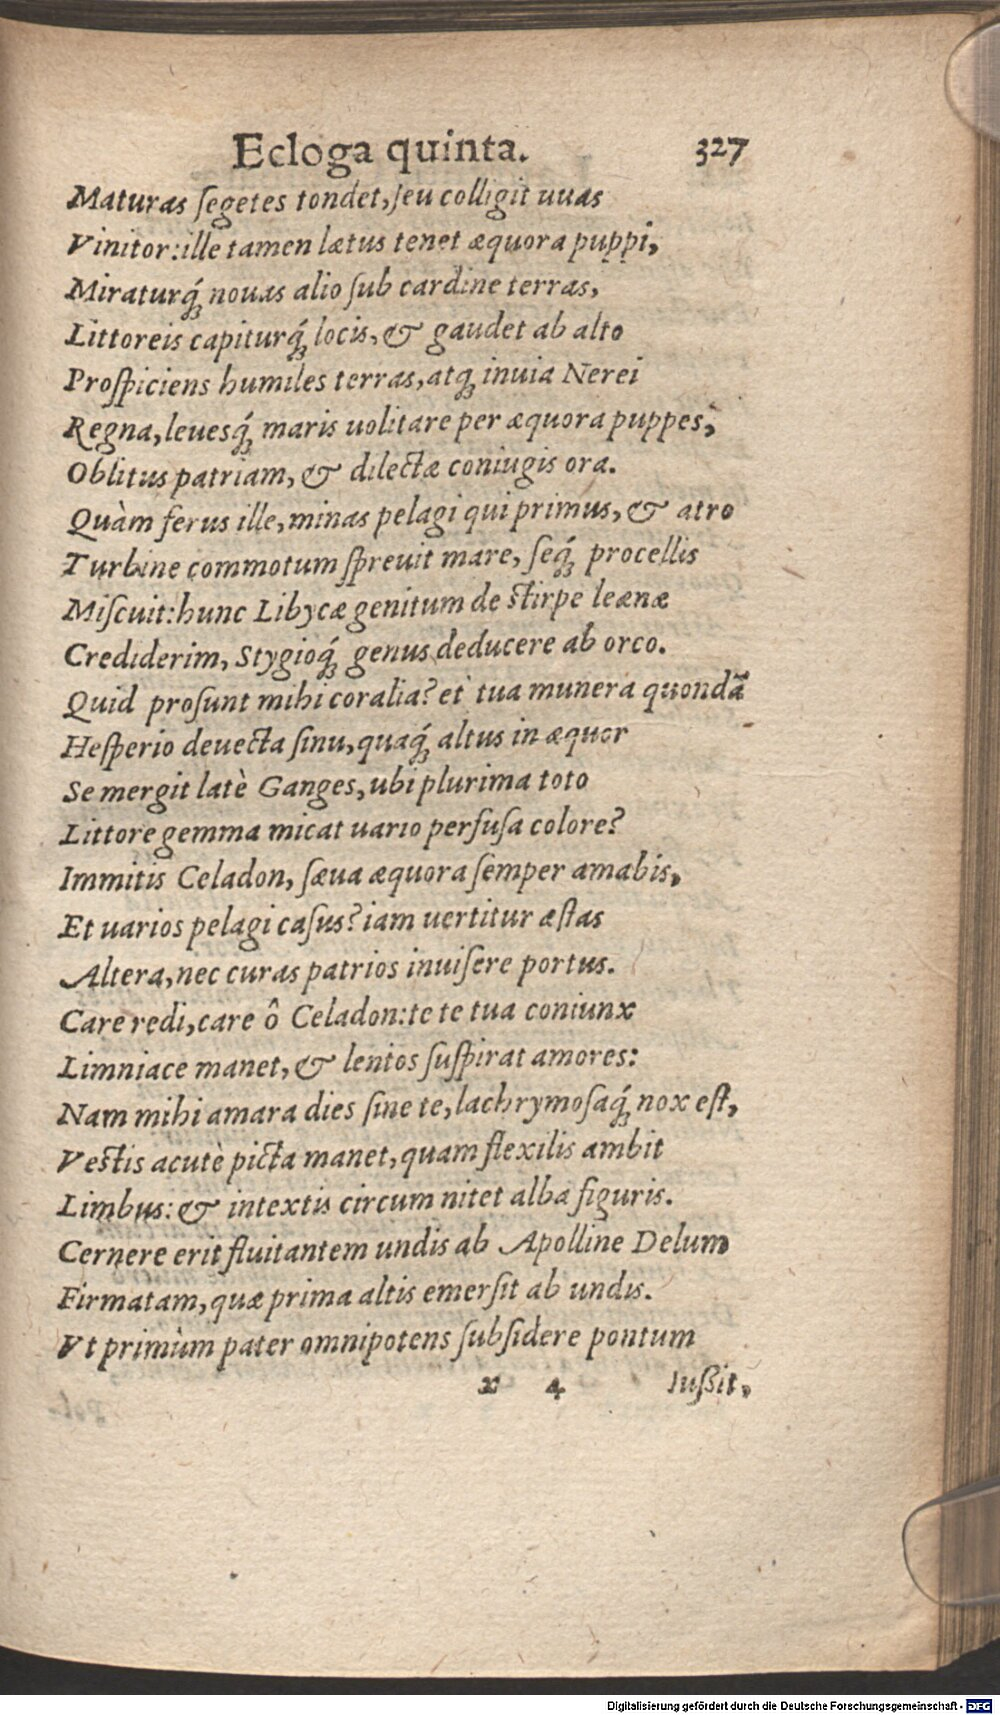 Ecloga quinta. 327
Maturas ſegetes tondet, ſeu colligit uuas
Vinitor: ille tamen lætus tenet æquora puppi,
Miraturq́ꝫ nouas alio ſub cardine terras,
Littoreis capiturq́ꝫ locis, & gaudet ab alto
Proſpiciens humiles terras, atqꝫ inuia Nerei
Regna, leuesq́ꝫ maris uolitare per æquora puppes,
Oblitus patriam, & dilectæ coniugis ora.
Quàm ferus ille, minas pelagi qui primus, & atro
Turbine commotum ſpreuit mare, ſeq́ꝫ procellis
Miſcuit: hunc Libycæ genitum de stirpe leænæ
Crediderim, Stygioq́ꝫ genus deducere ab orco.
Quid proſunt mihi coralia? et tua munera quondã
Heſperio deuecta ſinu, quaq́ꝫ altus in æquor
Se mergit latè Ganges, ubi plurima toto
Littore gemma micat uario perfuſa colore?
Immitis Celadon, ſæua æquora ſemper amabis,
Et uarios pelagi caſus? iam uertitur æſtas
Altera, nec curas patrios inuiſere portus.
Care redi, care ô Celadon: te te tua coniunx
Limniace manet, & lentos ſuſpirat amores:
Nam mihi amara dies ſine te, lachrymoſaq́ꝫ nox eſt,
Vestis acutè picta manet, quam flexilis ambit
Limbus: & intextis circum nitet alba figuris.
Cernere erit fluitantem undis ab Apolline Delum
Firmatam, quæ prima altis emerſit ab undis.
Vt primùm pater omnipotens ſubſidere pontum
x 4 Iußit,
Digitalisierung gefördert durch die Deutsche Forschungsgemeinschaft - DFG